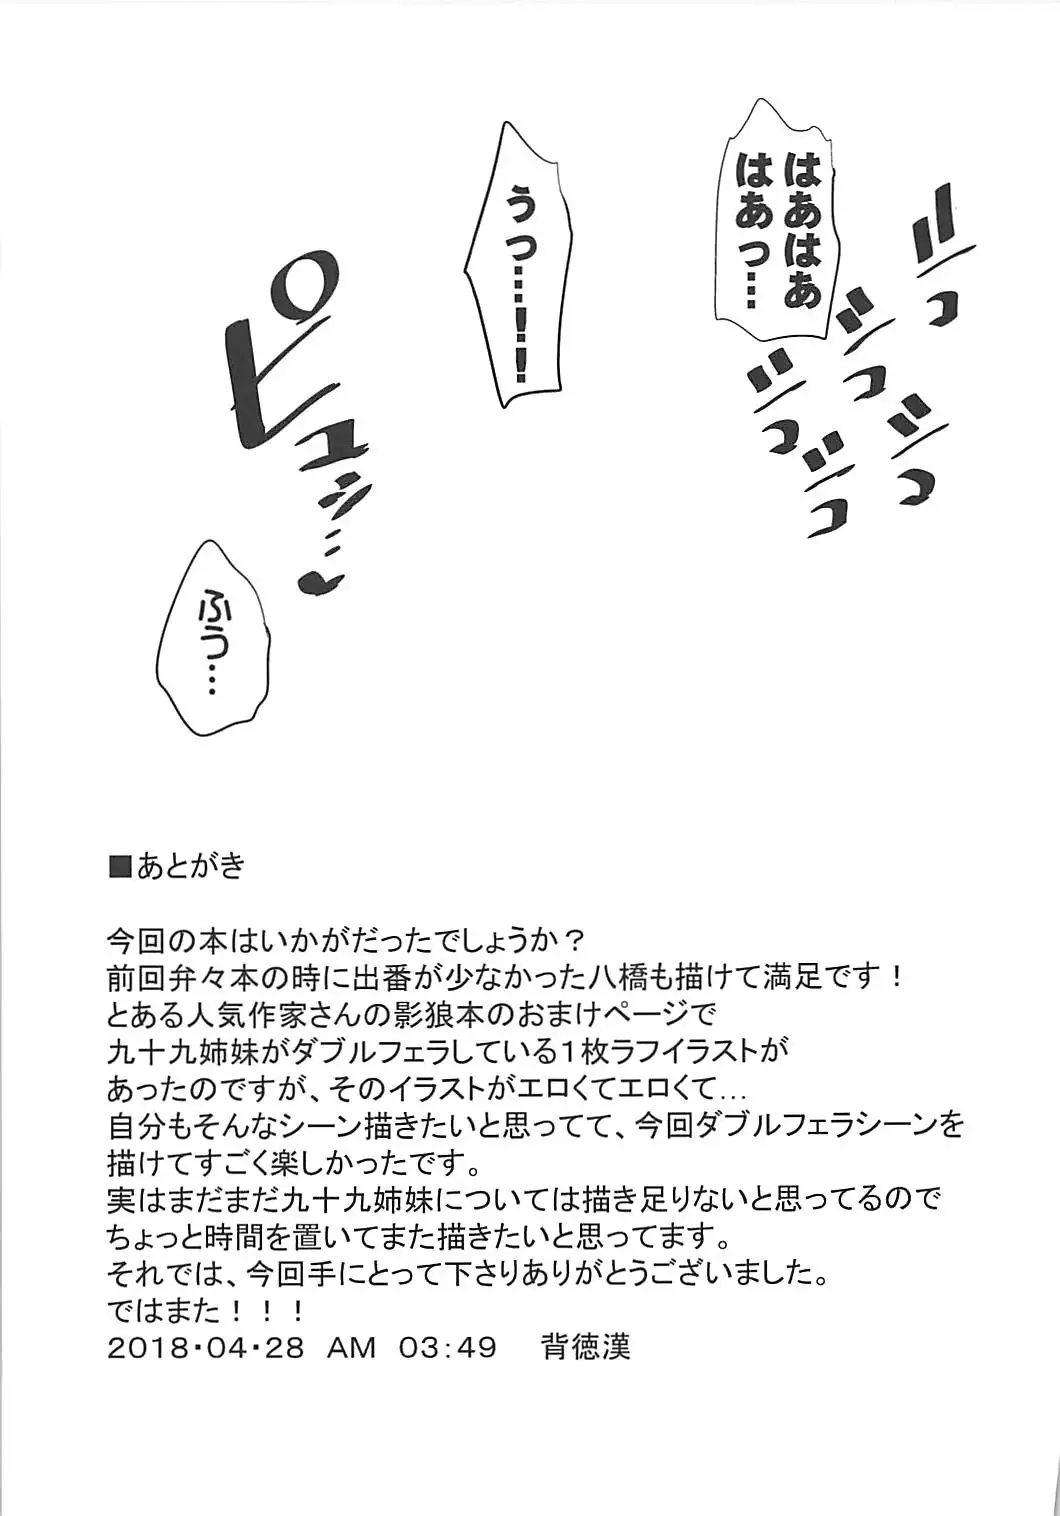 はあはあ
はあっ…
ジっ
ジっ
ジっ
ジっ
ジっ
うっ…!!
ピュッ…
ふぅ…
■あとがき
今回の本はいかがだったでしょうか？
前回弁々本の時に出番が少なかった八橋も描けて満足です！
とある人気作家さんの影狼本のおまけページで
九十九姉妹がダブルフェラしている１枚ラフイラストが
あったのですが、そのイラストがエロくてエロくて…
自分もそんなシーン描きたいと思ってて、今回ダブルフェラシーンを
描けてすごく楽しかったです。
実はまだまだ九十九姉妹については描き足りないと思ってるので
ちょっと時間を置いてまた描きたいと思ってます。
それでは、今回手にとって下さりありがとうございました。
ではまた！！！
2018・04・28　AM　03:49　背徳漢